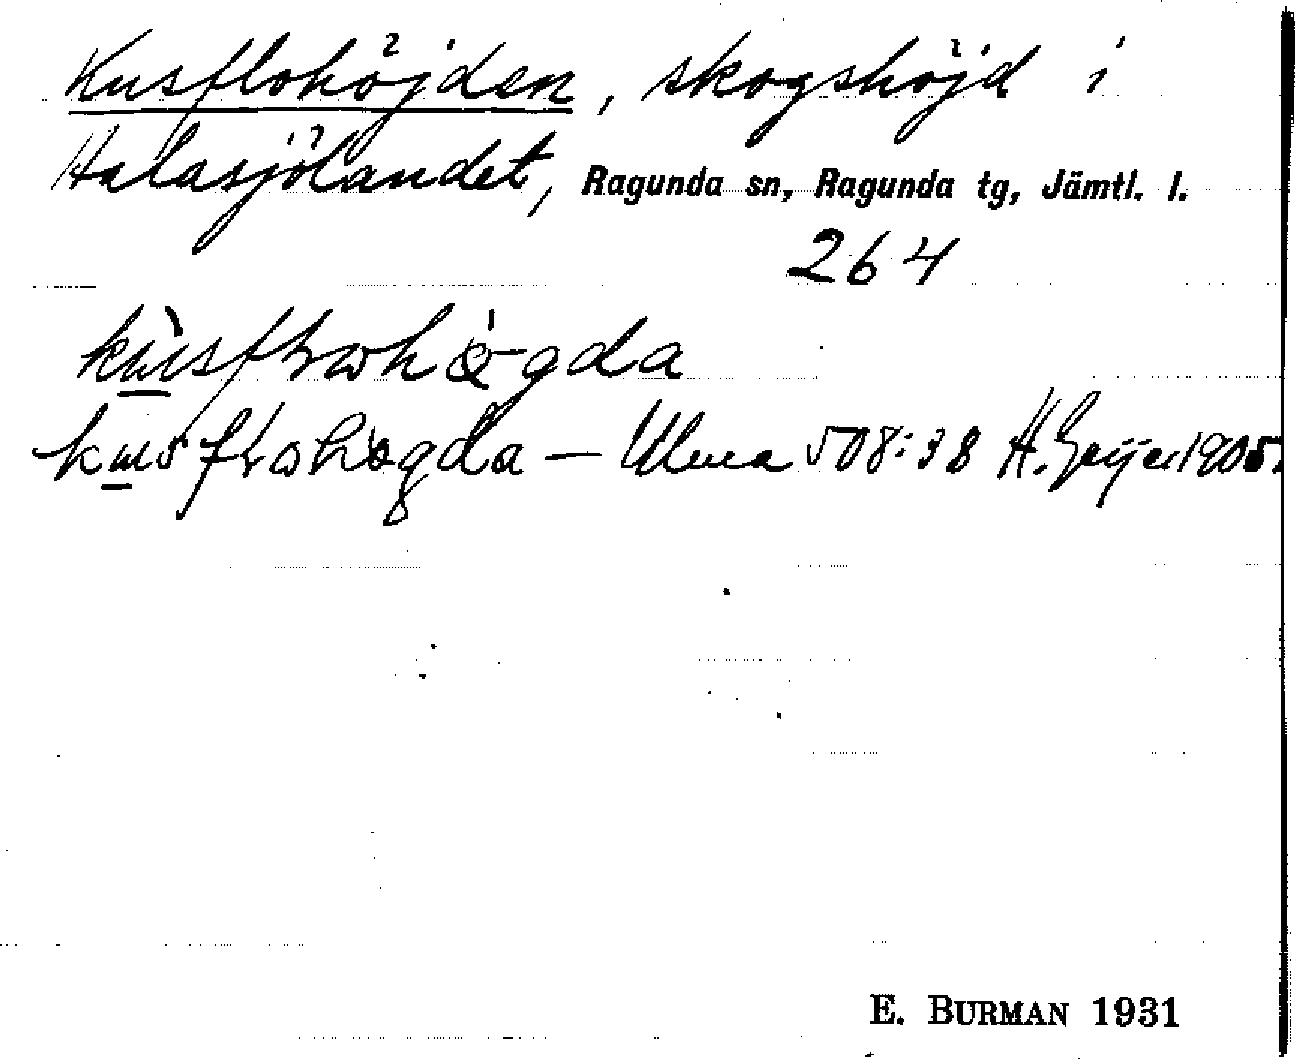 Kusflohöjden, skogshöjd i
Halasjölandet, Ragunda sn, Ragunda tg, Jämtl. l.
264
— Ulma 508:38 H. Geijer 1905.
E. BURMAN 1931